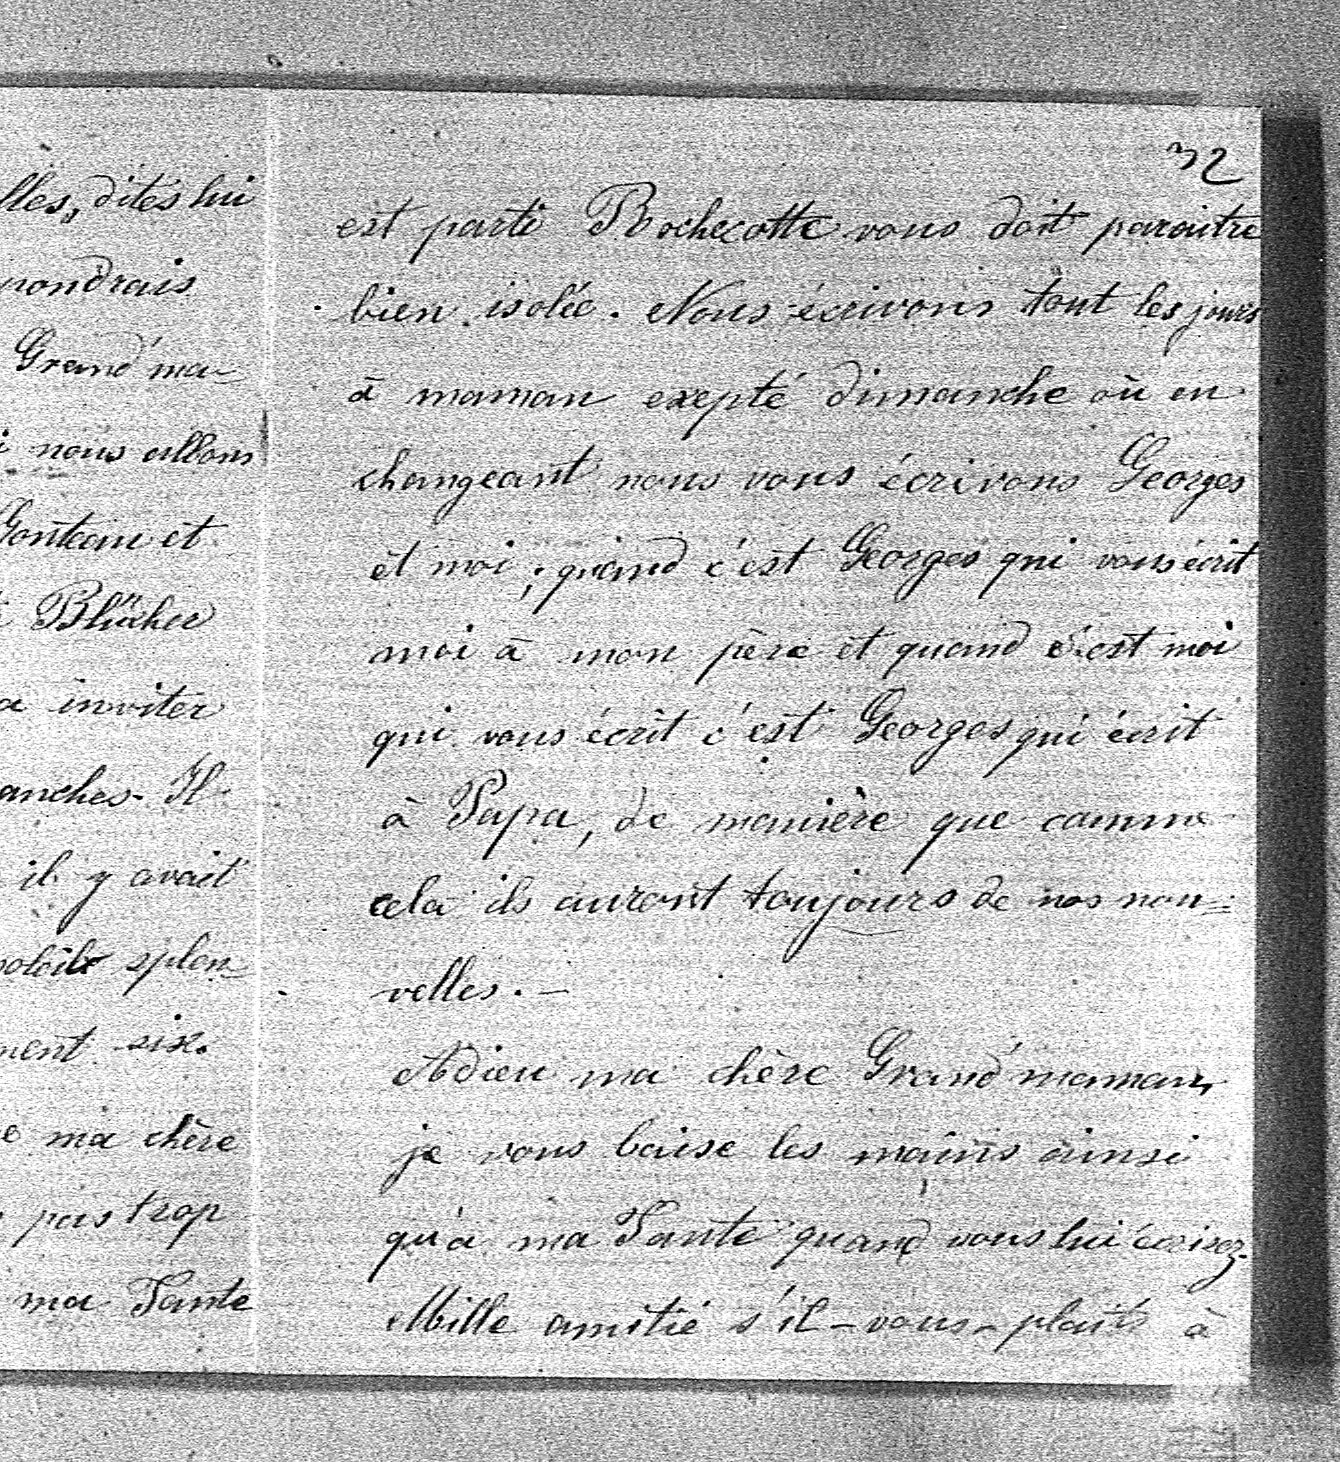 lles, dites lui
pondrais
Grand'ma=
i nous allons
Gontaut et
Blücher
a inviter
anches. Il
il y avait
splen=
ment six.
e ma chère
pas trop
ma Tante
32
est parti Rochecotte vous doit paraitre
bien isolée. Nous écrivons tout les jours
à maman exepté dimanche où en
changeant nous vous écrivons Georges
et moi ; quand c'est Georges qui vous écrit
moi à mon père et quand c'est moi
qui vous écrit c'est Georges qui écrit
à Papa, de manière que comme
cela ils auront toujours de nos nou=
velles. —
Adieu ma chère Grand'maman,
je vous baise les mains ainsi
qu'à ma Tante quand vous lui écrivez.
Mille amitié s'il-vous-plaits à